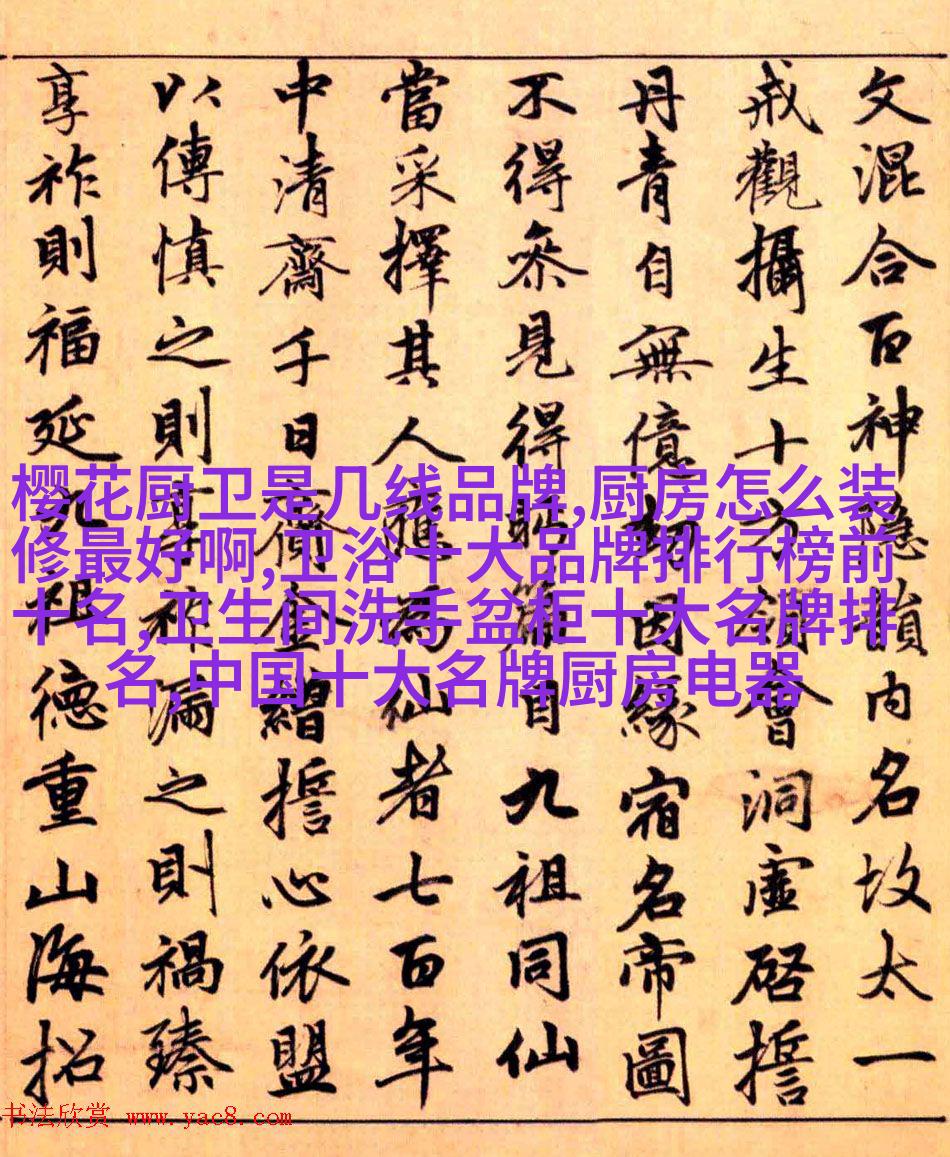 文混合百神隱内名故太一
戒觀攝生十方會洞虛啓誓
丹青自無億劫因緣宿名帝圖
不得參見得眄篇目九祖同仙
當采擇其人應為仙者七百年
中清齋千日齎金繒誓心依盟
以傳慎之則享祚漏之則禍臻
享祚則福延九祖德重山海招
樱花厨卫是几线品牌,厨房怎么装
修最好啊,卫浴十大品牌排行榜前
十名,卫生间洗手盆柜十大名牌排
名,中国十大名牌厨房电器
书法欣赏 www.yac8.com